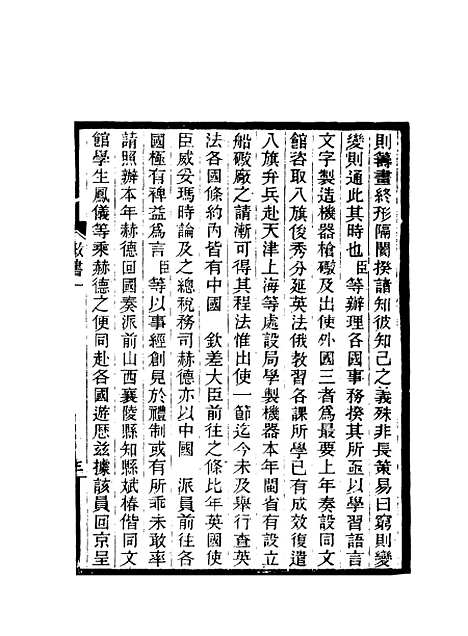 則籌畫終形隔閡揆諸知彼知己之義殊非長策易曰窮則變
變則通此其時也臣等辦理各國事務揆其所亟以學習語言
文字製造機器槍礮及出使外國三者爲最要上年奏設同文
館咨取八旗俊秀分延英法俄敎習各課所學已有成效復遣
八旗弁兵赴天津上海等處設局學製機器本年閩省有設立
船礮廠之請漸可得其程法惟出使一節迄今未及舉行查英
法各國條約內皆有中國 欽差大臣前往之條比年英國使
臣威妥瑪時論及之總稅務司赫德亦以中國 派員前往各
國極有裨益爲言臣等以事經創見於禮制或有所乖未敢率
請照辦本年赫德回國奏派前山西襄陵縣知縣斌椿偕同文
館學生鳳儀等乘赫德之便同赴各國遊歷茲據該員回京呈